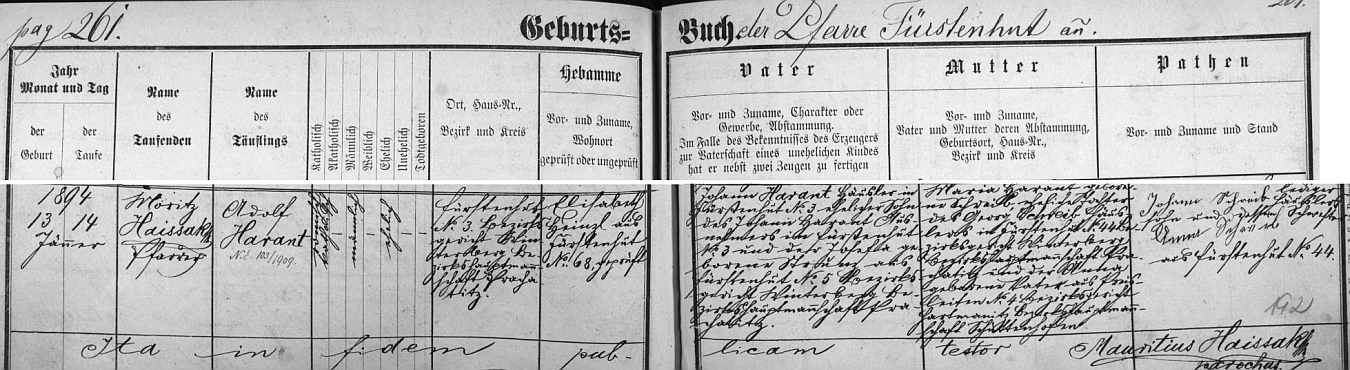 pag 261.
Geburts=
Buch der Pfarre Fürstenhut
Jahr
Monat und Tag
der
Geburt
der
Taufe
Name
des
Taufenden
Name
des
Täuflings
Katholisch
Akatholisch
Männlich
Weiblich
Ehelich
Unehelich
Todtgeboren
Ort, Haus-Nr.,
Bezirk und Kreis
Hebamme
Vor- und Zuname,
Wohnort
geprüft oder ungeprüft
Vater
Vor- und Zuname, Charakter oder
Gewerbe, Abstammung.
Im Falle des Bekenntnisses des Erzeugers
zur Vaterschaft eines unehelichen Kindes
hat er nebst zwei Zeugen zu fertigen
Mutter
Vor- und Zuname,
Vater und Mutter deren Abstammung,
Geburtsort, Haus-Nr.,
Bezirk und Kreis
Pathen
Vor- und Zuname und Stand
1894
13 14
Jänner
Moritz
Haissak
Pfarrer
Adolf
Harant
N.E. 103/1909.
katholisch
männlich
ehelich
Fürstenhut
N. 3. Bezirks
gericht Win
terberg Be
zirkshauptmann
schaft Pracha
titz.
Elisabeth
Heinzl aus
Fürstenhut
No. 68, geprüft
Johann Harant Häusler in
Fürstenhut N. 3 ehelicher Sohn
des Johann Harant Aus
nehmers in Fürstenhut
N. 3 und der Josefa ge
borene Strunz aus
Fürstenhut N. 5 Bezirks
gericht Winterberg Be
zirkshauptmannschaft Pra
chatitz.
Maria Harant gebore
ne Schreib eheliche Tochter
des Georg Schreib Häus
lers in Fürstenhut N. 44 Be
zirksgericht Winterberg
Bezirkshauptmannschaft Pra
chatitz und der Anna
geborene Vater aus
N. 4 Bezirksgericht
Hartmanitz Bezirkshauptman
schaft Schüttenhofen
Johann Schreib lediger
Häuslers
Sohn und dessen Schwester
Anna Schreib
aus Fürstenhut No. 44.
192
Ita in fidem pub-
licam testor Mauritius Haissak
parochus.